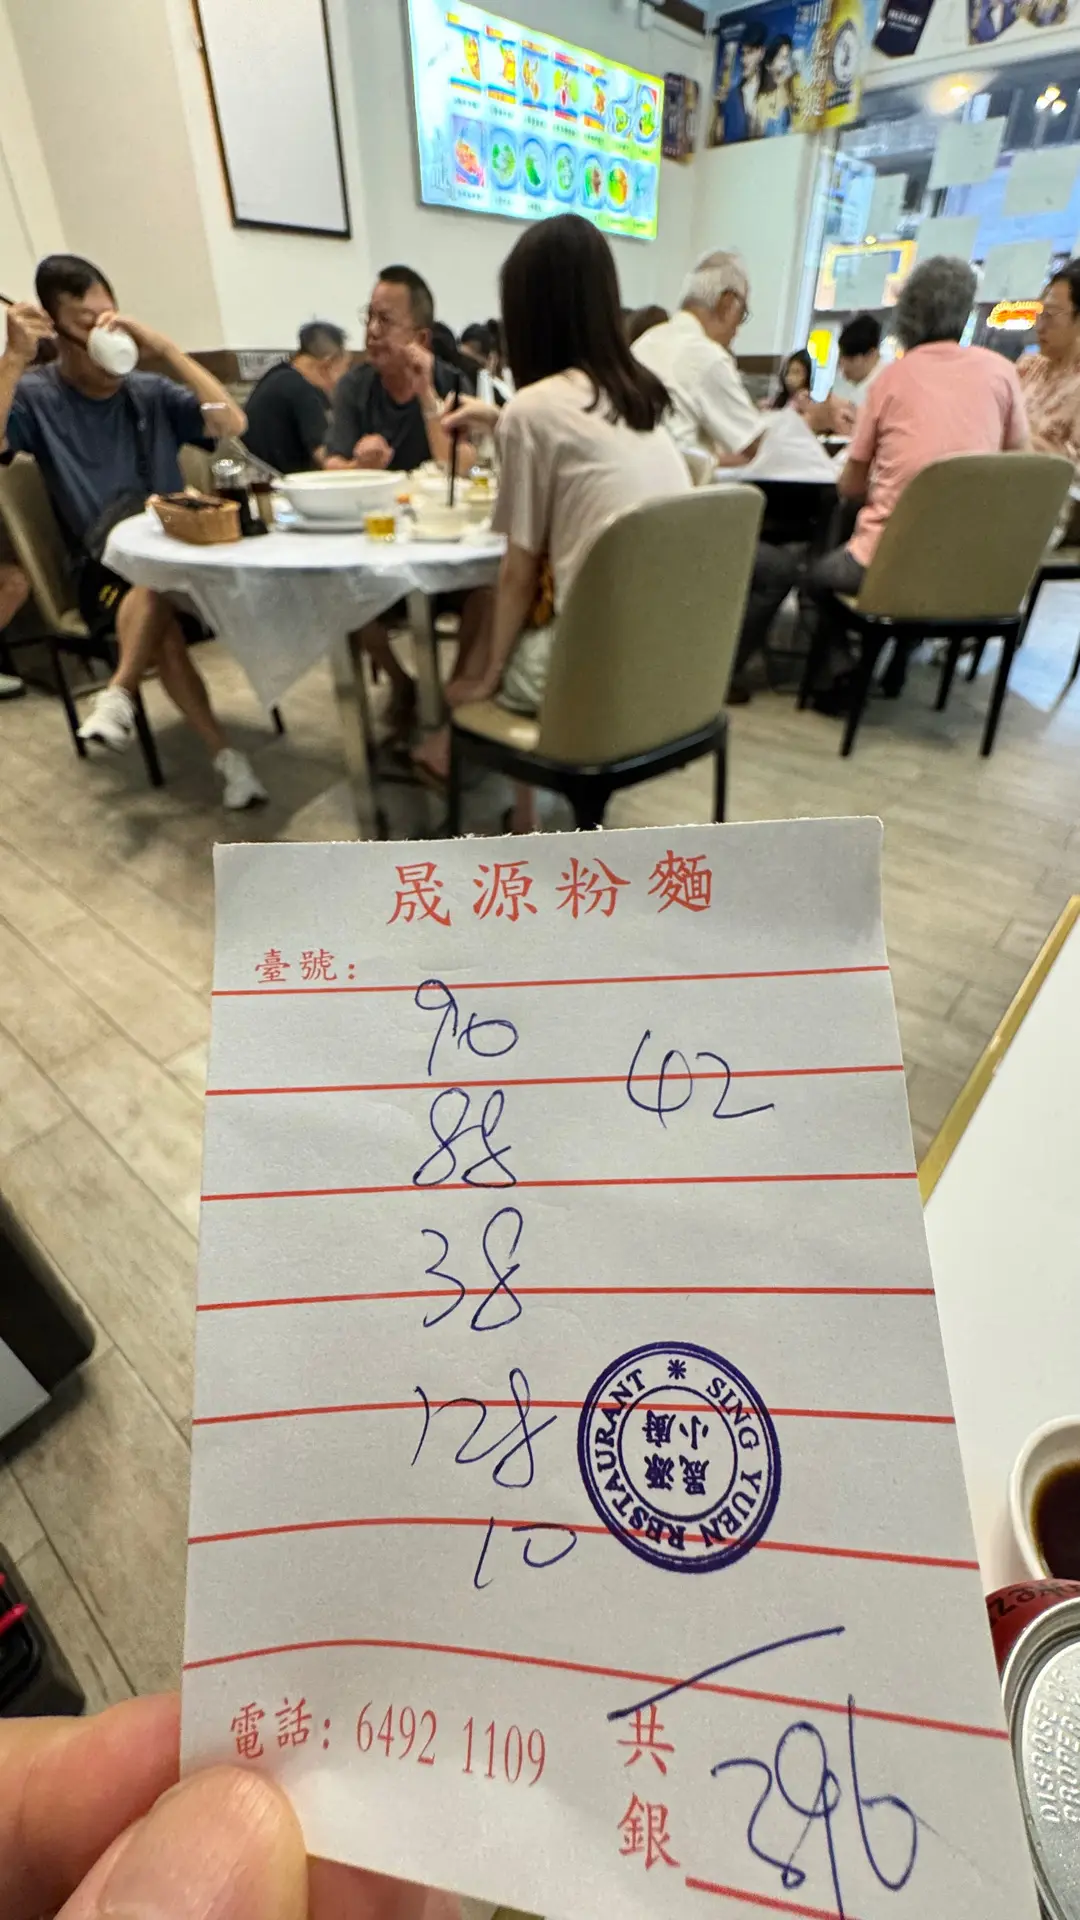 晟源粉麵
臺號：
90
42
88
38
128
10
SING YUEN RESTAURANT
晟源
小廚
電話：6492 1109
共銀 396
DISPOSE